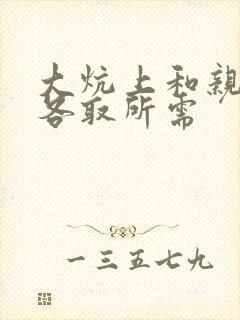 大炕上和親
各取所需
一三五七九